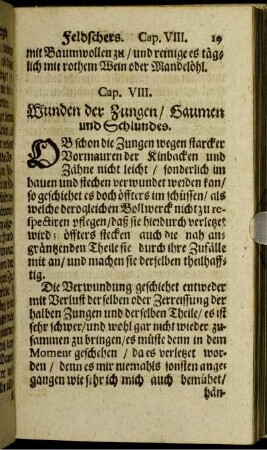 Feldschers. Cap. VIII. 19
mit Baumwollen zu / und reinige es täg-
lich mit rothem Wein oder Mandelöhl.
Cap. VIII.
Wunden der Zungen / Gaumen
und Schlundes.
OB schon die Zungen wegen starcker
Vormauren der Kinbacken und
Zähne nicht leicht / sonderlich im
hauen und stechen verwundet werden kan /
so geschiehet es doch öffters im schüssen / als
welche derogleichen Bollwerck nicht zu re-
spectiren pflegen / daß sie hierdurch verletzet
wird; öffters stecken auch die nah an-
gräntzenden Theile sie durch ihre Zufälle
mit an / und machen sie derselben theilhaff-
tig.
Die Verwundung geschiehet entweder
mit Verlust derselben oder Zerreissung der
halben Zungen und derselben Theile / es ist
sehr schwer / und wohl gar nicht wieder zu-
sammen zu bringen / es müste denn in dem
Moment geschehen / da es verletzet wor-
den / denn es mir niemahls sonsten ange-
gangen wie sehr ich mich auch bemühet /
hän-